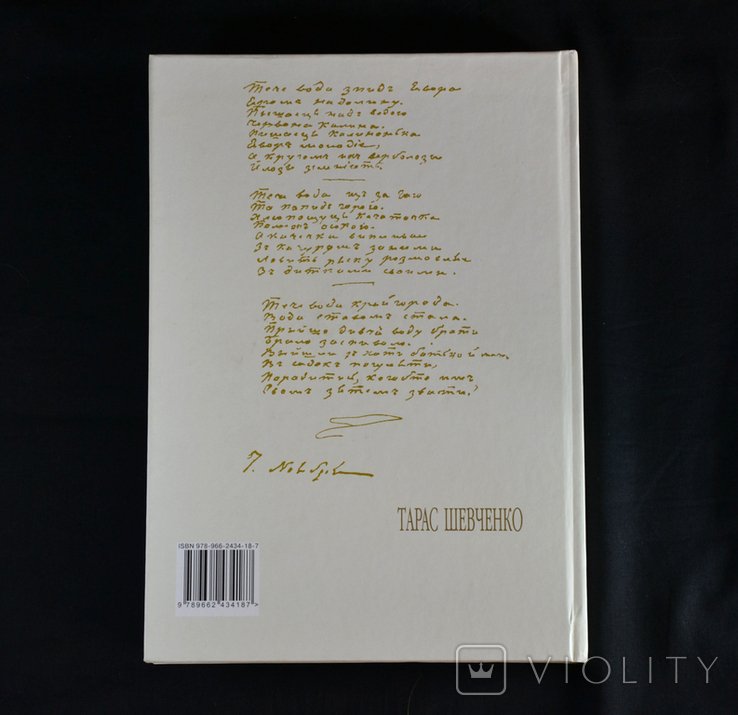 Тече вода зпидъ Явора
Яромъ надолину.
Пышаецъця надъ водою
Червона калина.
Пишаецъця калинонька
Яворъ молодіе,
А кругомъ ихъ верболозы
Й лозы зеленіють.
Тече вода изъ за гаю
Та попидъ горою.
Хлюпощуцця качаточка
Помежъ осокою.
А качечка выплывае
Зъ качуромъ за ними
Ловыть ряску розмовляе
Зъ дитками своими.
Тече вода край города.
Вода ставомъ стала.
Прийшло дивча воду брати
Брало заспивало.
Вийшли зъ хаты батько й мати,
Въ садокъ погуляти,
Порадитись, кого бъ то имъ
Своимъ зятемъ звати?
7. Ноября
ТАРАС ШЕВЧЕНКО
ISBN 978-966-2434-18-7
9 789662 434187 >
VIOLITY